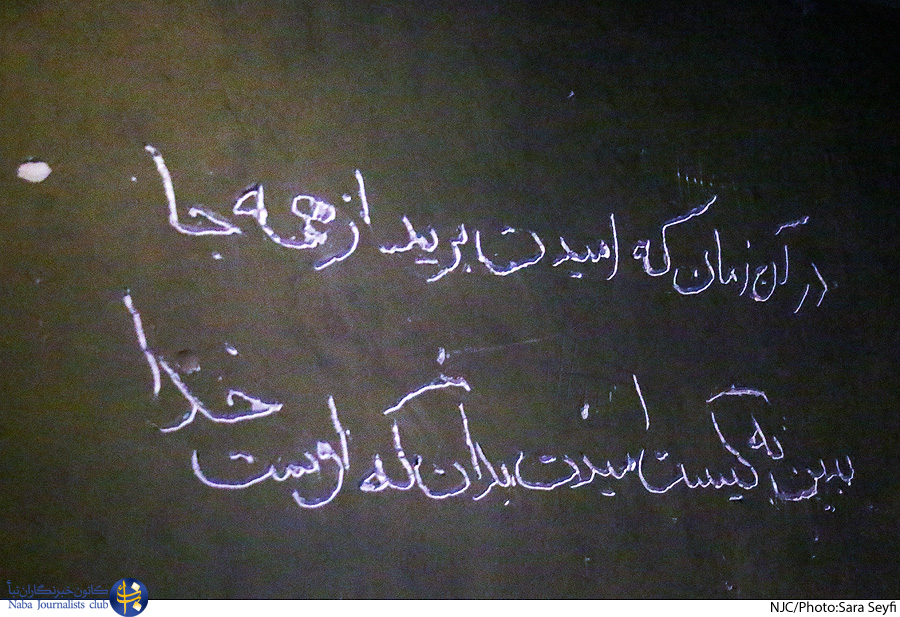 در آن زمان که امیدت برید از همه جا
ببین به کیست امیدت بدان که اوست خدا
کانون خبرنگاران نبأ
Naba Journalists club
NJC/Photo:Sara Seyfi